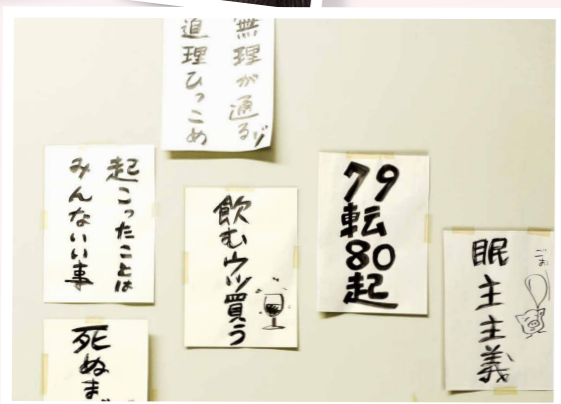 無理が通るゾ
道理ひっこめ
起こったことは
みんないい事
飲むウツ買う
79転80起
眠主主義
死ぬま